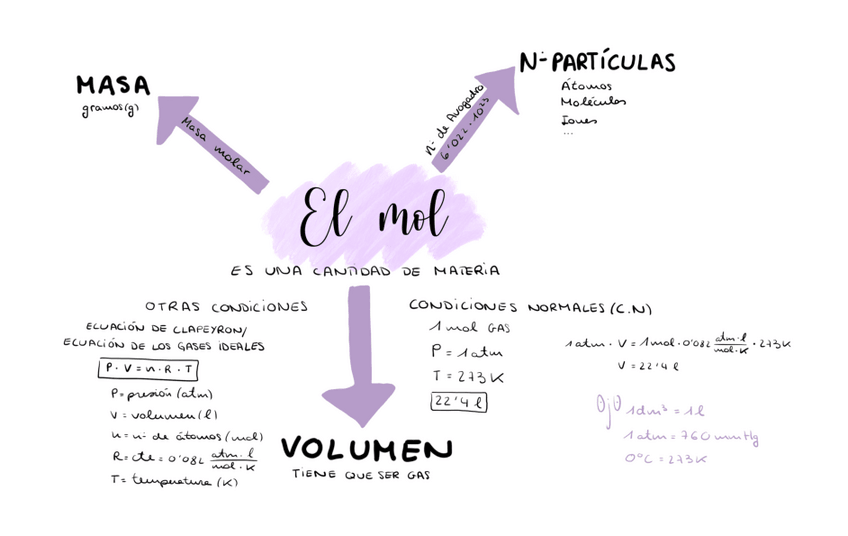 MASA
gramos(g)
Masa molar
Nº PARTÍCULAS
Átomos
Moléculas
Iones
...
nº de Avogadro
6'022 · 10²³
El mol
ES UNA CANTIDAD DE MATERIA
OTRAS CONDICIONES
ECUACIÓN DE CLAPEYRON/
ECUACIÓN DE LOS GASES IDEALES
P · V = n · R · T
P = presión (atm)
V = volumen (l)
n = nº de átomos (mol)
R = cte = 0'082 atm · l / mol · K
T = temperatura (K)
CONDICIONES NORMALES (C.N)
1 mol GAS
P = 1 atm
T = 273 K
22'4 l
1 atm · V = 1 mol · 0'082 atm · l / mol · K · 273 K
V = 22'4 l
Ojo 1 dm³ = 1 l
1 atm = 760 mmHg
0ºC = 273 K
VOLUMEN
TIENE QUE SER GAS